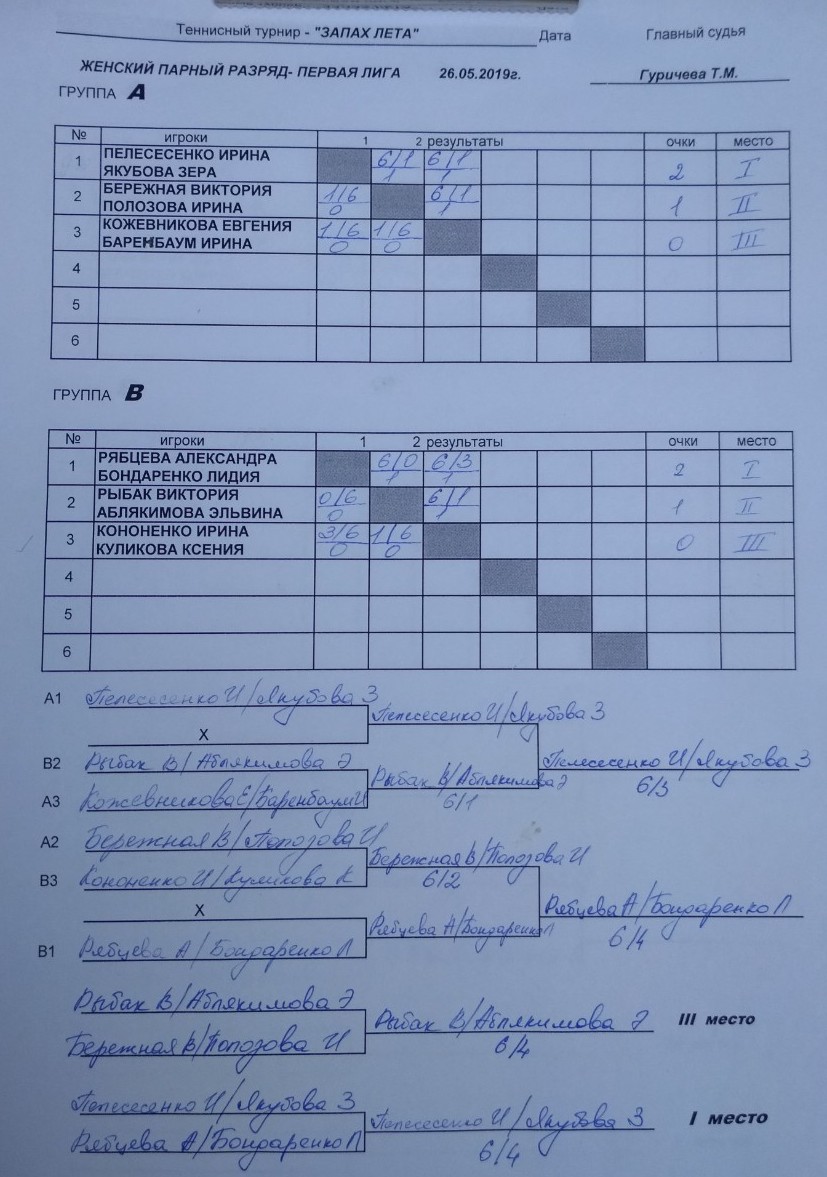 Теннисный турнир - "ЗАПАХ ЛЕТА" Дата Главный судья
ЖЕНСКИЙ ПАРНЫЙ РАЗРЯД- ПЕРВАЯ ЛИГА 26.05.2019г. Гуричева Т.М.
ГРУППА А
№ игроки 1 2 результаты очки место
1 ПЕЛЕСЕСЕНКО ИРИНА 6/1 6/1 2 I
ЯКУБОВА ЗЕРА 1 1
2 БЕРЕЖНАЯ ВИКТОРИЯ 1/6 6/1 1 II
ПОЛОЗОВА ИРИНА 0 1
3 КОЖЕВНИКОВА ЕВГЕНИЯ 1/6 1/6 0 III
БАРЕНБАУМ ИРИНА 0 0
4
5
6
ГРУППА В
№ игроки 1 2 результаты очки место
1 РЯБЦЕВА АЛЕКСАНДРА 6/0 6/3 2 I
БОНДАРЕНКО ЛИДИЯ 1 1
2 РЫБАК ВИКТОРИЯ 0/6 6/1 1 II
АБЛЯКИМОВА ЭЛЬВИНА 0 1
3 КОНОНЕНКО ИРИНА 3/6 1/6 0 III
КУЛИКОВА КСЕНИЯ 0 0
4
5
6
А1 Пелесесенко И/Якубова З
Пелесесенко И/Якубова З
Х
В2 Рыбак В/Аблякимова Э Пелесесенко И/Якубова З
Рыбак В/Аблякимова Э 6/3
А3 Кожевникова Е/Баренбаум И 6/1
А2 Бережная В/Полозова И
Бережная В/Полозова И
В3 Кононенко И/Куликова К 6/2
Х Рябцева А/Бондаренко Л
Рябцева А/Бондаренко Л 6/4
В1 Рябцева А/Бондаренко Л
Рыбак В/Аблякимова Э
Рыбак В/Аблякимова Э III место
Бережная В/Полозова И 6/4
Пелесесенко И/Якубова З
Пелесесенко И/Якубова З I место
Рябцева А/Бондаренко Л 6/4